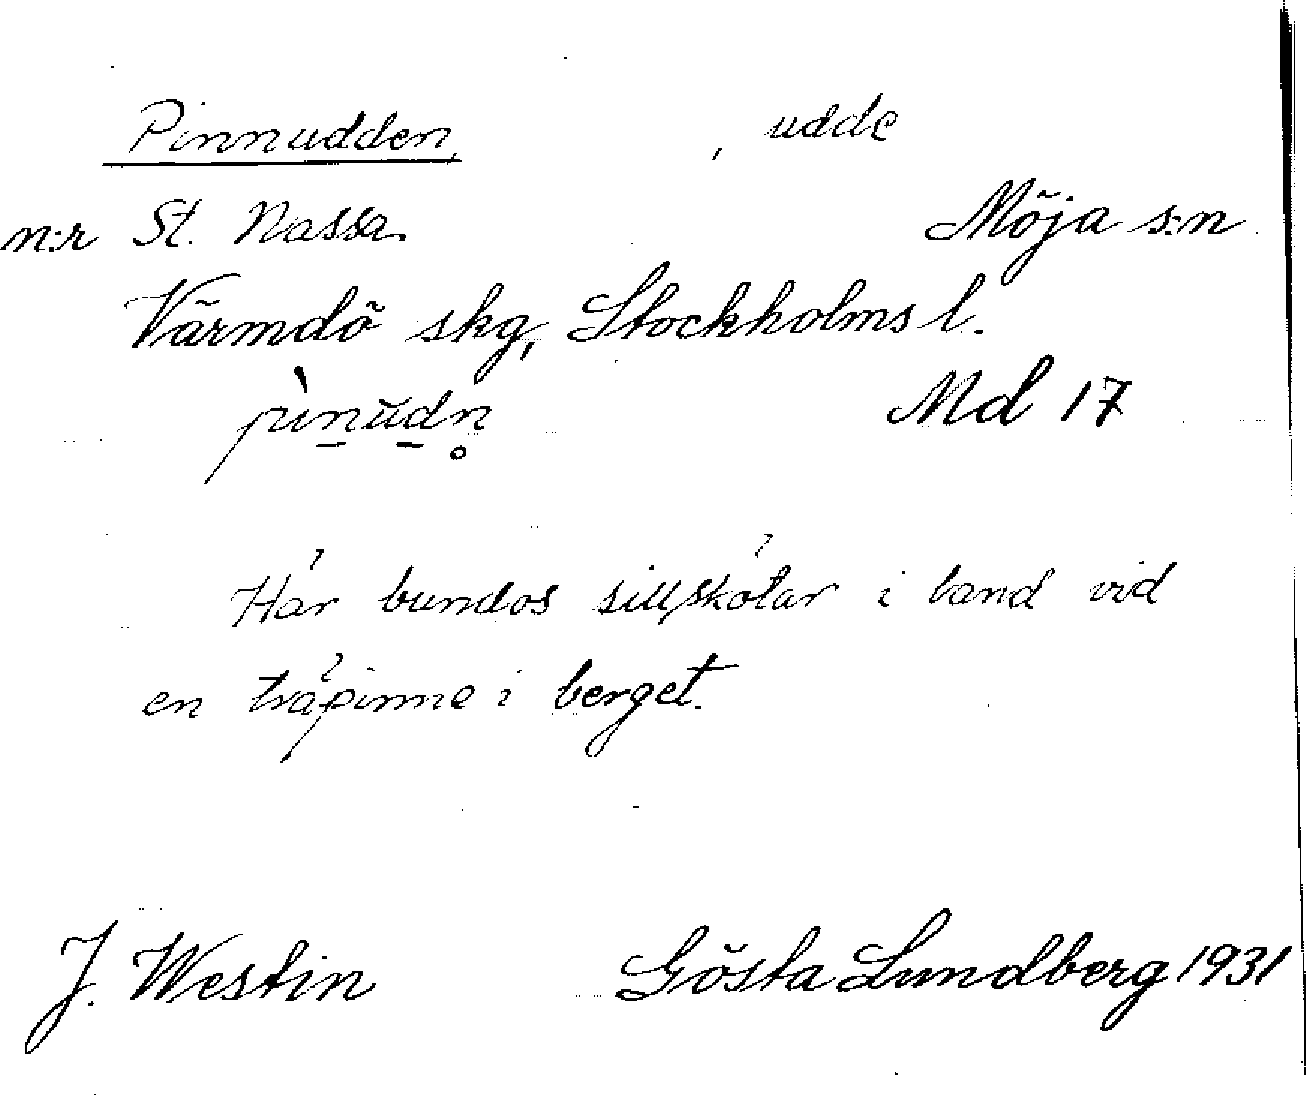 Pinnudden, , udde
n:r St. Nassa. Möja s:n
Värmdö skg, Stockholms l.
pìn̲ŭd̲n̥ Md 17
Här bundos sillskötar i band vid
en träpinne i berget.
J. Westin Gösta Lundberg 1931